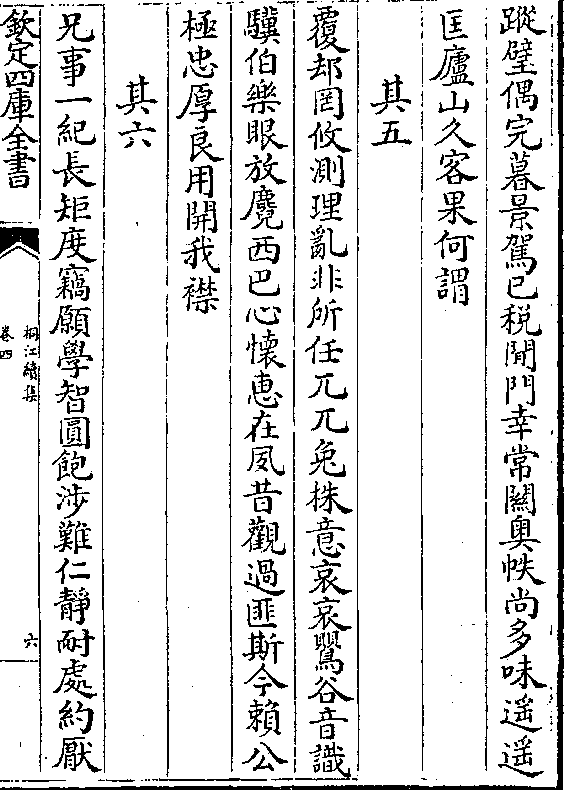 蹤璧偶完暮景駕已税閉門幸常關奥帙尚多味遥遥
匡廬山久客果何謂
其五
覆却罔攸測理亂非所任兀兀兔株意哀哀鸎谷音識
驥伯樂眼放麑西巴心懷恵在夙昔觀過匪斯今賴公
極忠厚良用開我襟
其六
兄事一紀長矩度竊願學智圓飽涉難仁靜耐處約厭
欽定四庫全書
桐江續集
卷四
六